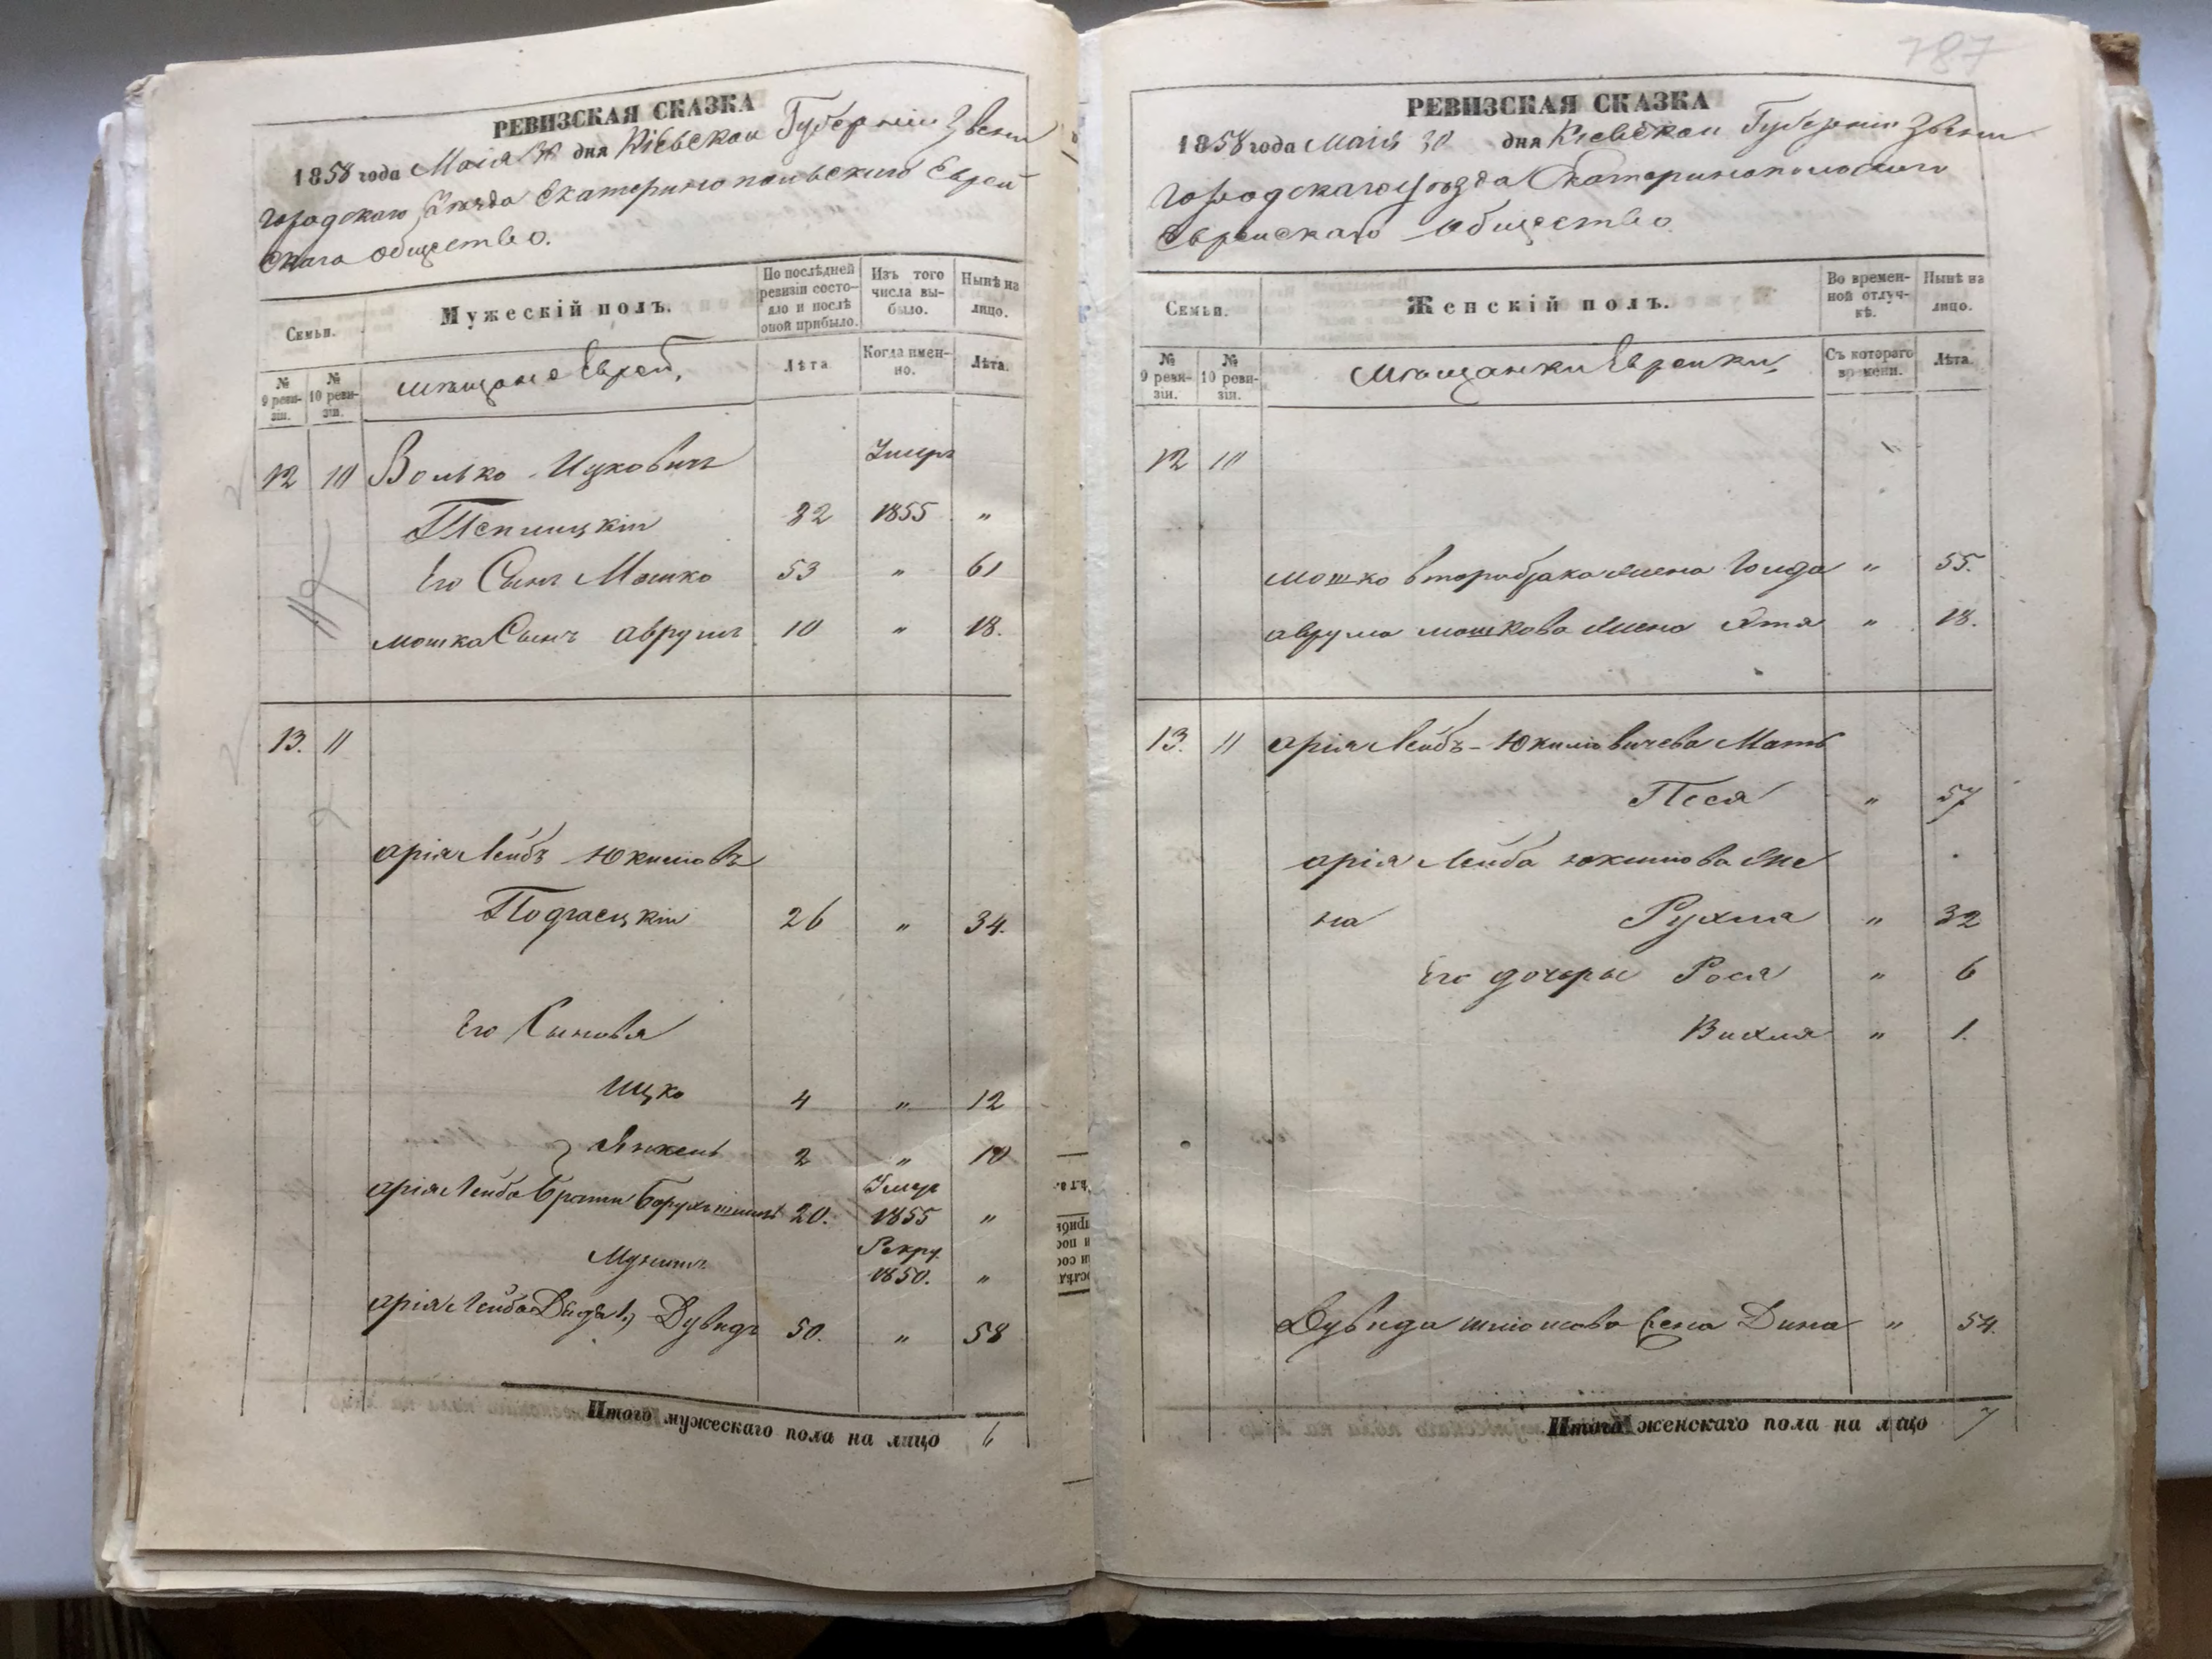 РЕВИЗСКАЯ СКАЗКА
1858 года Маія 30 дня Кіевской Губерніи Звени
городскаго Уезда Екатеринопольскаго Еврей
скаго общество.
Семьи.
Мужескій полъ.
По послѣдней ревизіи состояло и послѣ оной прибыло.
Изъ того числа выбыло.
Нынѣ на лицо.
№ 9 ревизіи.
№ 10 ревизіи.
мещане Евреи,
Лѣта
Когда именно.
Лѣта.
12 10 Волько Ицковичъ Умеръ
32 1855 "
Его Сынъ Мошко 53 " 61
мошка Сынъ аврумъ 10 " 18.
13. 11
арія Лейбъ Юкимовъ
Подгаецкій 26 " 34.
Его Сыновя
Ицко 4 " 12
Янкель 2 " 10
арія Лейба братъ 20. Умер 1855 "
Рекру. 1850. "
арія Лейба Дядя Дувидъ 50. " 58
Итого мужескаго пола на лицо 6
787
РЕВИЗСКАЯ СКАЗКА
1858 года Маія 30 дня Кіевской Губерніи Звени
городскаго уезда Екатеринопольскаго
Еврейскаго общество.
Семьи.
Женскій полъ.
Во временной отлучкѣ.
Нынѣ на лицо.
№ 9 ревизіи.
№ 10 ревизіи.
Мещанки Еврейки,
Съ котораго времени.
Лѣта.
12 10 "
мошко второбрака жена Голда " 55.
аврума мошкова жена Этя " 18.
13. 11 арія Лейбъ-Юкимовичева Мать
Песя " 57
арія Лейба юкимова же
на Рухля " 32
Его дочеры Рося " 6
Вихля " 1.
Дувида шлиомова жена Дина " 54.
Итого женскаго пола на лицо 7